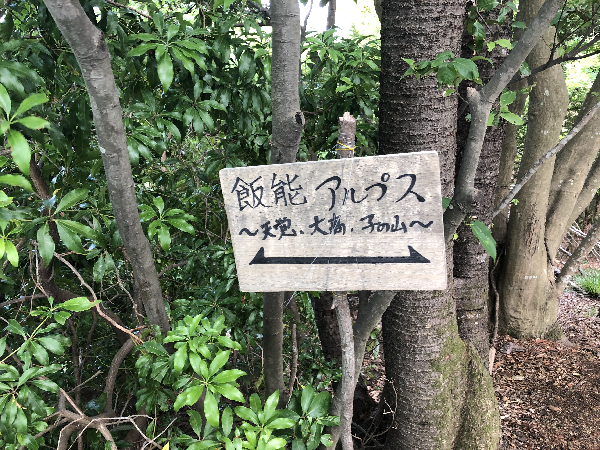 飯能アルプス
～天覚、大高、子の山～